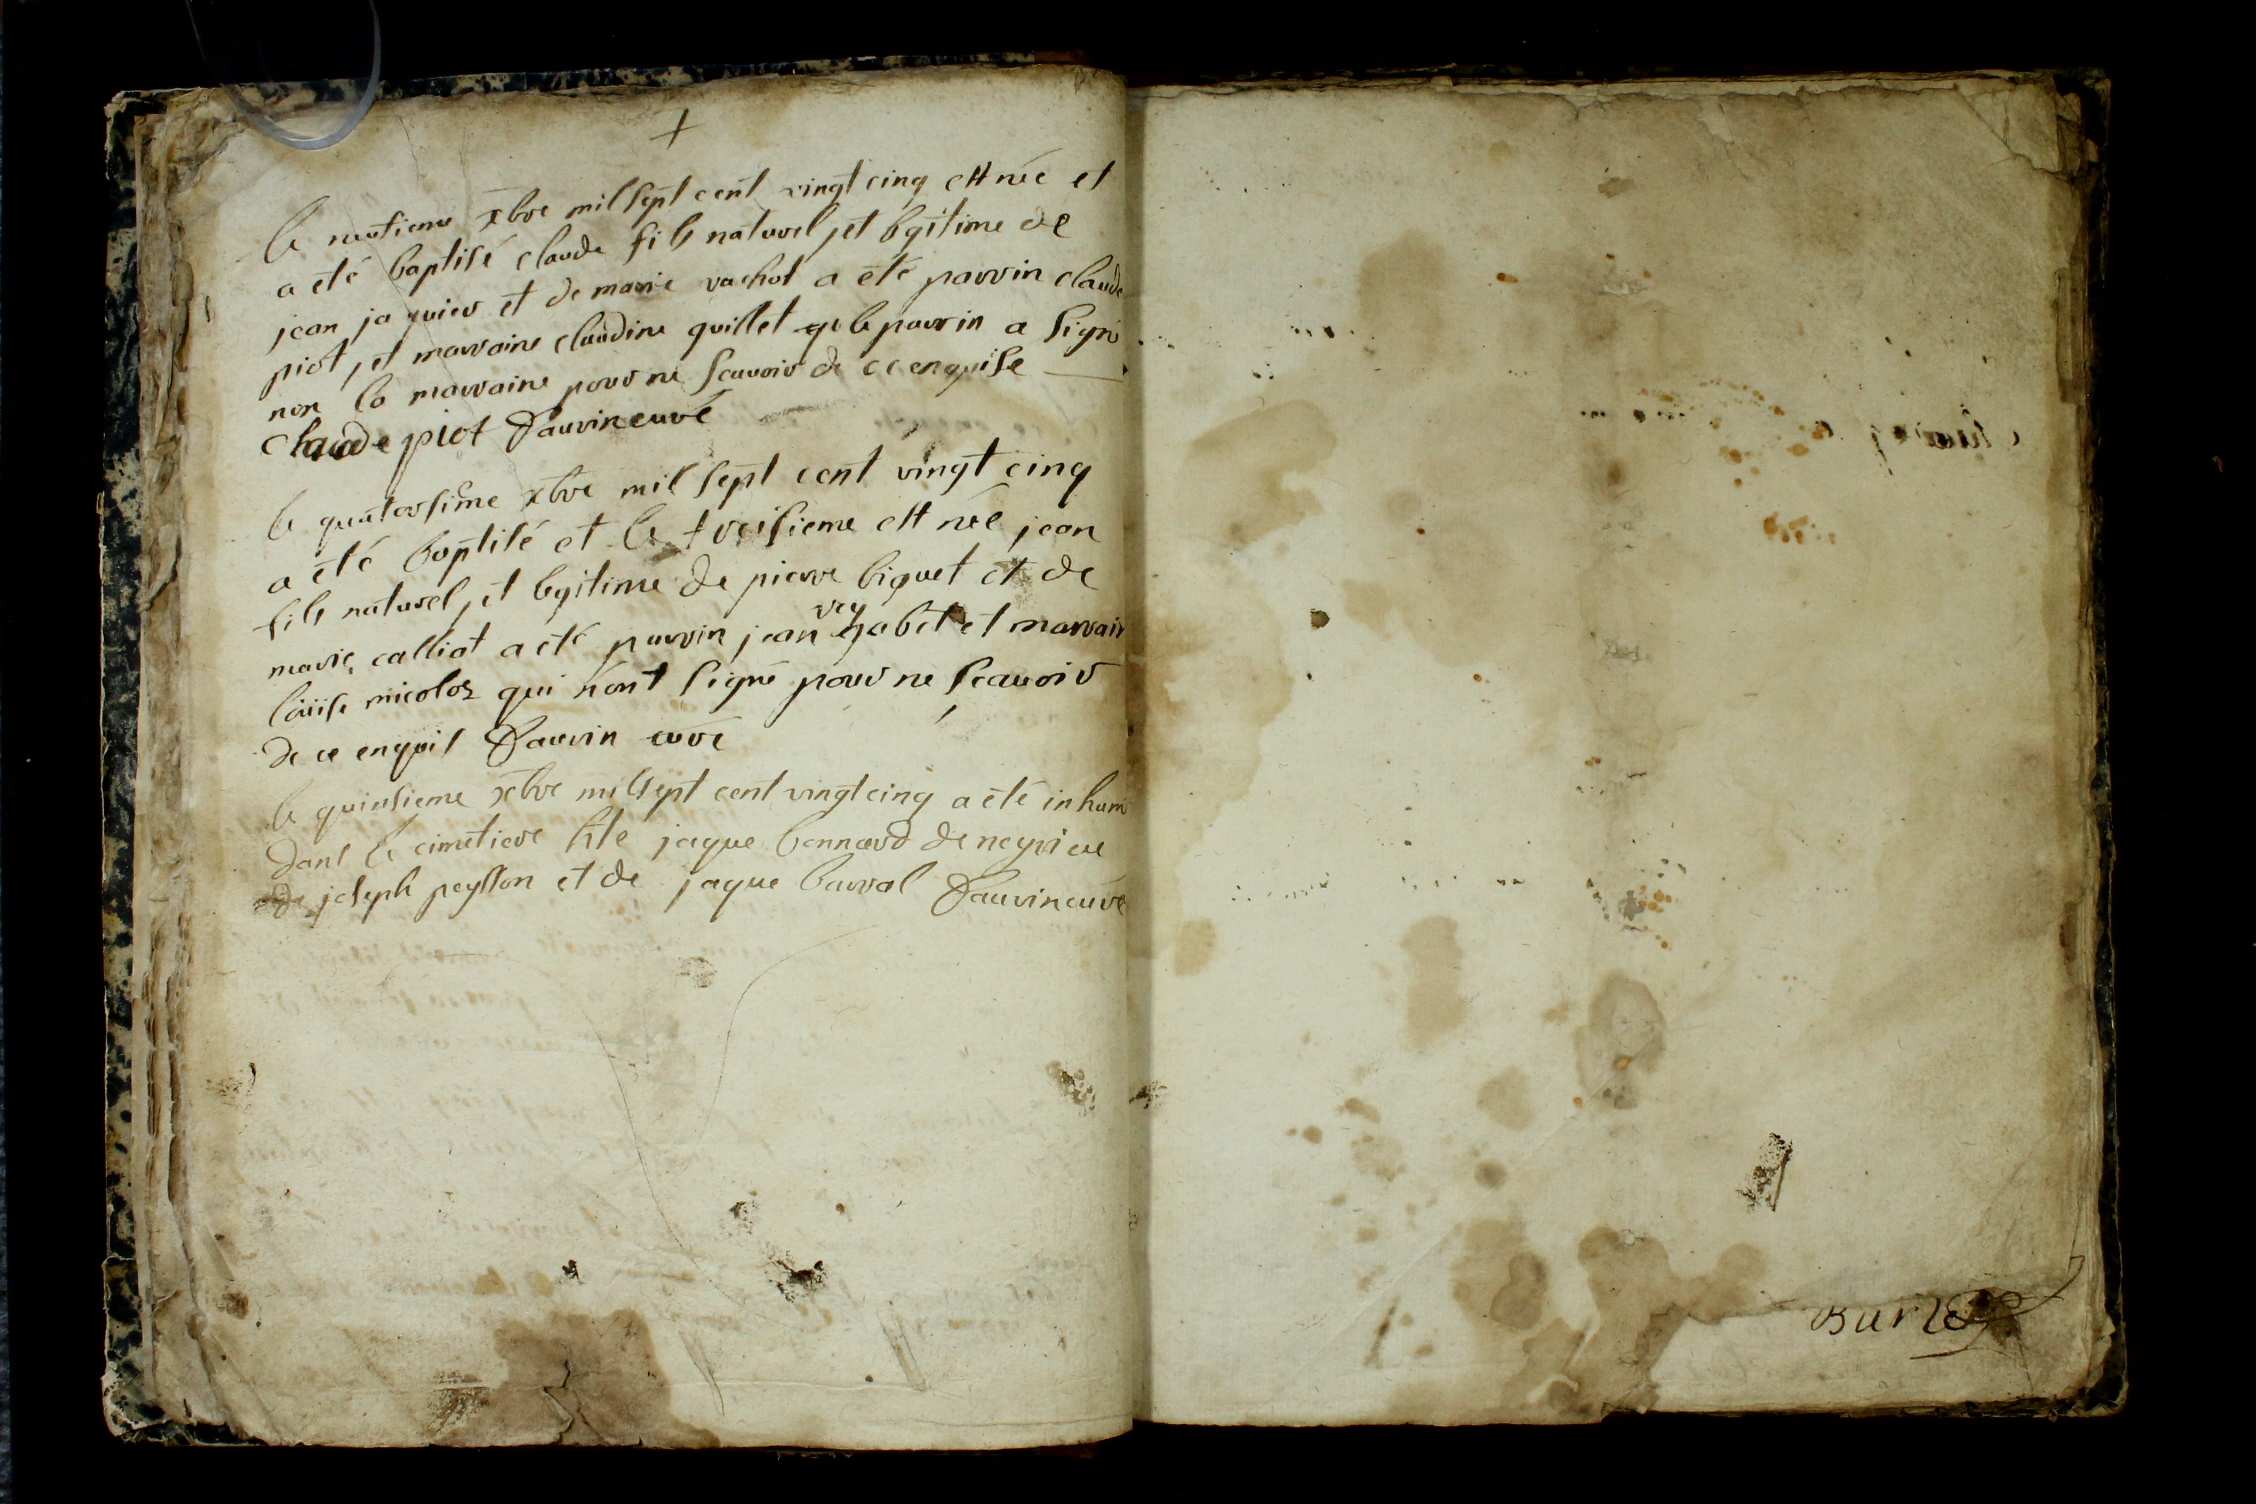 +
le neufieme xbre mil sept cent vingt cinq est née et
a été baptisé claude fils naturel, et legitime de
jean jaquier et de marie vachot a été parrin claude
piot, et marraine claudine quillet le parrin a signé
non la marraine pour ne scavoir de ce enquise
claude piot Dauvin curé
le quatorsieme xbre mil sept cent vingt cinq
a été baptisé et le treisieme est née jean
fils naturel, et legitime de pierre biguet et de
marie calliat a été parrin jean rey gabet et marrain
loüise nicolas qui n'ont signé pour ne scavoir
de ce enquis Dauvin curé
le quinsieme xbre mil sept cent vingt cinq a été inhumé
dans le cimetiere jaque bonnard de neyrieu
de joseph peysson et de jaque barral Dauvin curé
Burle